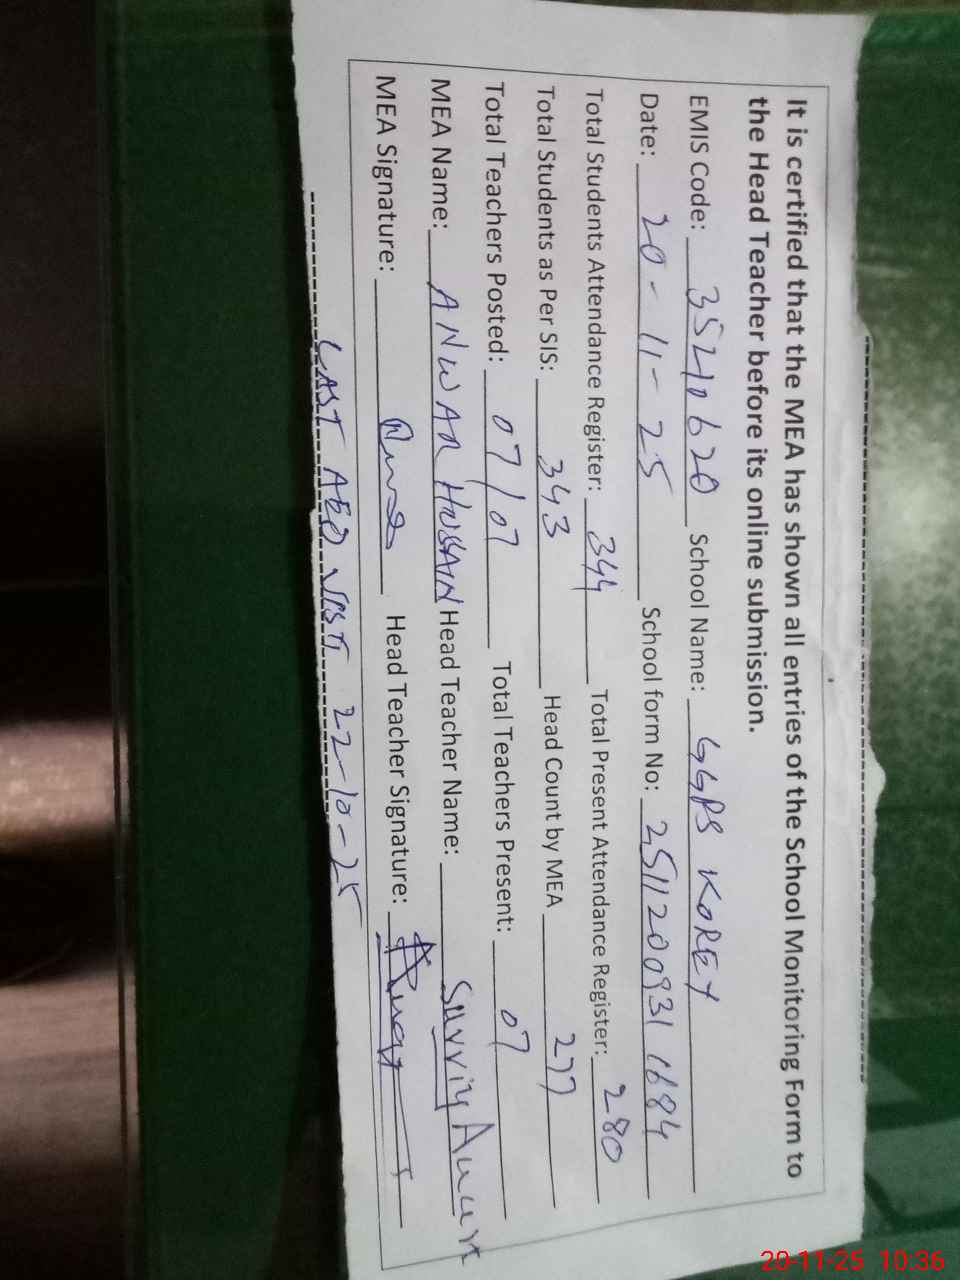 It is certified that the MEA has shown all entries of the School Monitoring Form to
the Head Teacher before its online submission.
EMIS Code: 35210620 School Name: GGPS KOREY
Date: 20-11-25 School form No: 25112009311684
Total Students Attendance Register: 344 Total Present Attendance Register: 280
Total Students as Per SIS: 343 Head Count by MEA 277
Total Teachers Posted: 07/07 Total Teachers Present: 07
MEA Name: ANWAR HUSSAIN Head Teacher Name:
MEA Signature: Head Teacher Signature:
LAST AEO VISIT 22-10-25
20-11-25 10:36